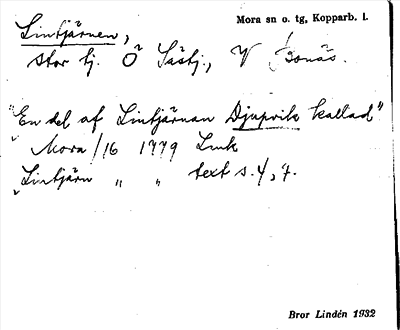 Lintjärnen,
Mora sn o. tg, Kopparb. l.
stor tj. Ö SäStj., V Bonäs.
"En del af Lintjärnan Djupvik kallad"
Mora/16 1779 Lmk
"Lintjärn " " text s. 4, 7.
Bror Lindén 1932